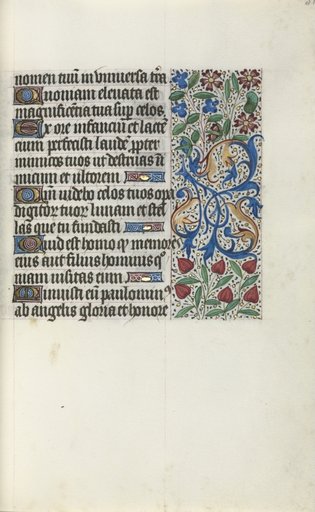 nomen tuū in vniuersa tr̄a
Quoniam eleuata est
magnificentia tua sup̄ celos.
Ex ore infanciū et lactē
cium perfecisti laudē, ꝓpter
inimicos tuos ut destruas īi
micum et vltorem
Qm̄ uidebo celos tuos oꝑa
digitoꝝ tuoꝝ lunam et stel
las que tu fundasti
Quid est homo ꝙ memor es
eius aut filius hominis qꝰ
niam uisitas eum
Minuisti eū paulominꝰ
ab angelis gloria et honore